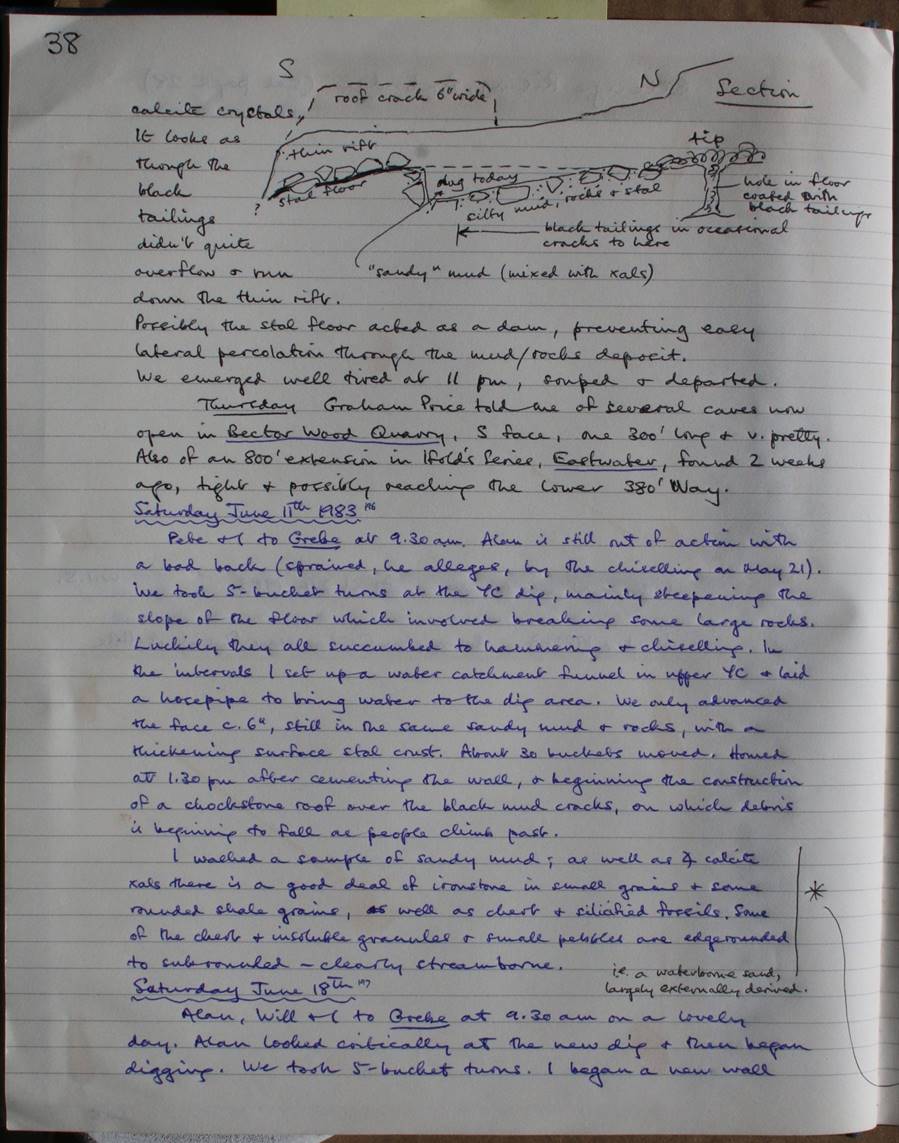 38
S
N
Section
roof crack 6" wide
thin rift
stal floor
?
dug today
?
silty mud, rocks & stal
tip
hole in floor
coated with
black tailings
black tailings in occasional
cracks to here
"sandy" mud (mixed with xals)
calcite crystals,
It looks as
though the
black
tailings
didn't quite
overflow & run
down the thin rift.
Possibly the stal floor acted as a dam, preventing easy
lateral percolation through the mud/rocks deposit.
We emerged well tired at 11 pm, souped & departed.
Thursday Graham Price told me of several caves now
open in Bector Wood Quarry, S face, one 300' long & v. pretty.
Also of an 800' extension in Ifold's Series, Eastwater, found 2 weeks
ago, tight & possibly reaching the lower 380' Way.
Saturday June 11th 1983 196
Pete & I to Grebe at 9.30 am. Alan is still out of action with
a bad back (sprained, he alleges, by the chiselling on May 21).
We took 5-bucket turns at the YC dig, mainly steepening the
slope of the floor which involved breaking some large rocks.
Luckily they all succumbed to hammering & chiselling. In
the intervals I set up a water catchment funnel in upper YC & laid
a hosepipe to bring water to the dig area. We only advanced
the face c. 6", still in the same sandy mud & rocks, with a
thickening surface stal crust. About 30 buckets moved. Homed
at 1.30 pm after cementing the wall, & beginning the construction
of a chockstone roof over the black mud cracks, on which debris
is beginning to fall as people climb past.
I washed a sample of sandy mud; as well as calcite
xals there is a good deal of ironstone in small grains & some
rounded shale grains, as well as chert & silicified fossils. Some
of the chert & insoluble granules & small pebbles are edgerounded
to subrounded – clearly streamborne.
*
i.e. a waterborne sand,
largely externally derived.
Saturday June 18th 197
Alan, Will & I to Grebe at 9.30 am on a lovely
day. Alan looked critically at the new dig & then began
digging. We took 5-bucket turns. I began a new wall